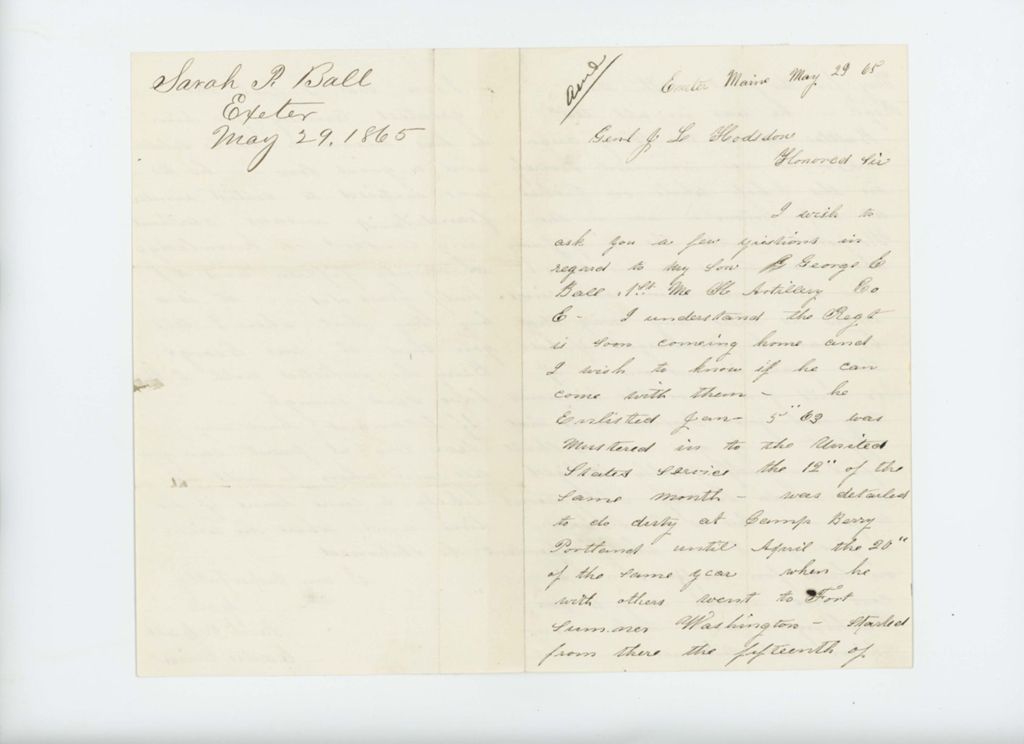 Sarah P. Ball
Exeter
May 29. 1865
Ansd
Exeter Maine May 29 65
Genl J L Hodsdon
Honored Sir
I wish to
ask you a few questions in
regard to my Son George E
Ball 1st Me H Artillery Co
E - I understand the Regt
is soon comeing home and
I wish to know if he can
come with them - he
Enlisted Jan 5" 63 was
Mustered in to the United
States Service the 12" of the
Same month - was detailed
to do duty at Camp Berry
Portland until April the 20"
of the same year when he
with others went to Fort
Sumner Washington - Started
from there the fifteenth of